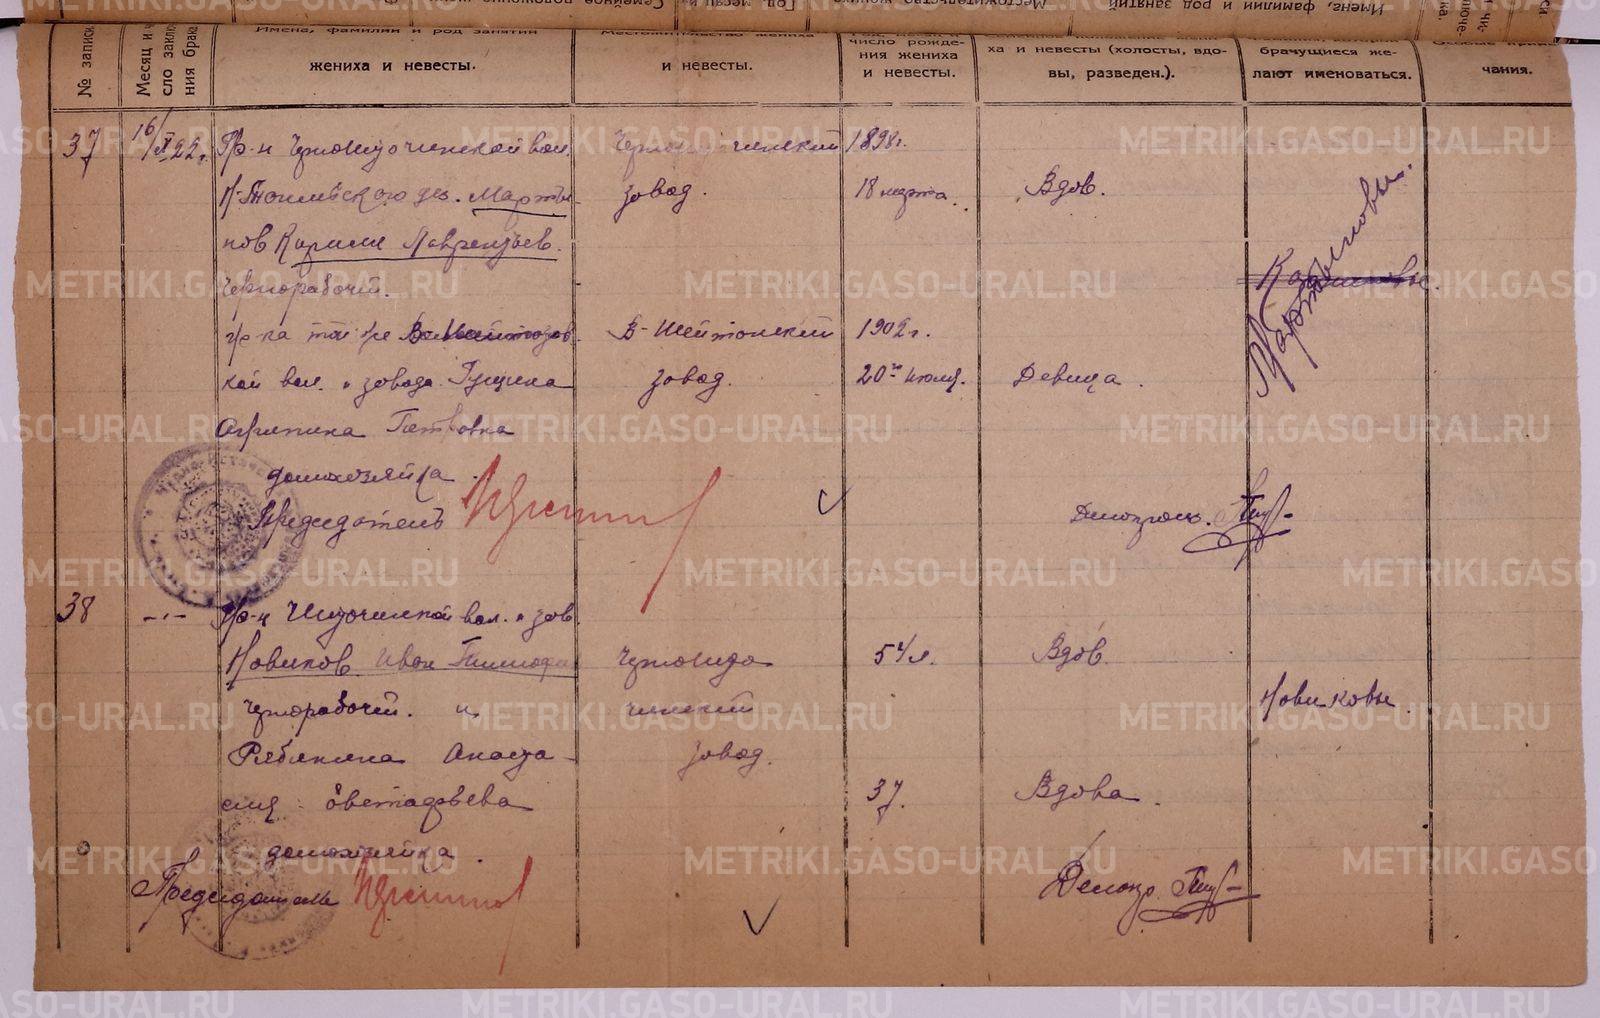 № записи
Месяц и
сло заклю
ния брака
Имена, фамилии и род занятий
жениха и невесты.
Местожительство жениха
и невесты.
число рожде-
ния жениха
и невесты.
ха и невесты (холосты, вдо-
вы, разведен.).
брачущиеся же-
лают именоваться.
чания.
37
16/X 22 г.
Гр-н Черноисточинской вол.
дер. Марты-
нов Лаврентьев.
Чернорабочий.
гр-ка той же
кой вол. и завода Гущина
Агрипина Петровна
домохозяйка.
Председатель
Черноисточинский
завод.
В-Шейтанский
завод.
1898г.
18 марта.
1902г.
20го июля.
Вдов.
Девица.
Мартыновы.
Делопроиз.
38
-"-
Гр-н Ч-источинской вол. и зав.
Новиков Иван Тимофе
Чернорабочий. и
Рябинина Анаста-
сия Евстафьева
домохозяйка.
Председатель
Черноисто
чинский
завод.
54л.
37.
Вдов.
Вдова.
Новиковы.
Делопр.
METRIKI.GASO-URAL.RU